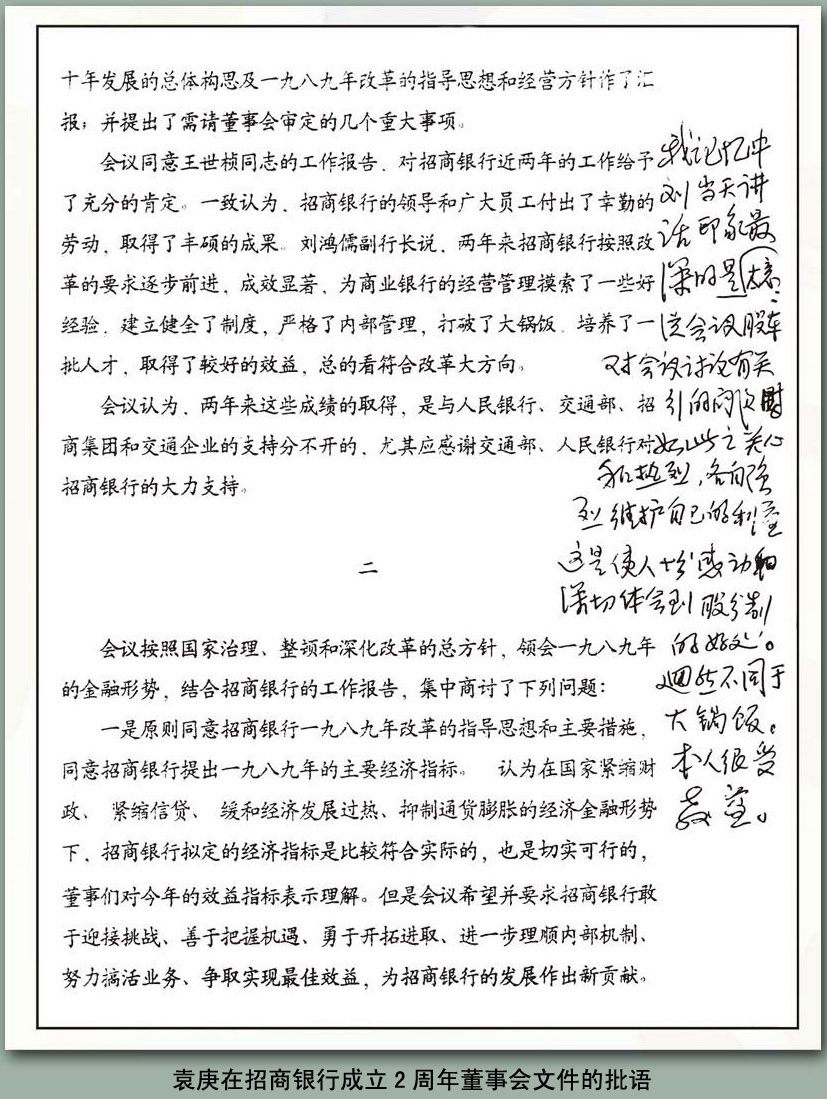 十年发展的总体构思及一九八九年改革的指导思想和经营方针作了汇
报；并提出了需请董事会审定的几个重大事项。
会议同意王世桢同志的工作报告，对招商银行近两年的工作给予
了充分的肯定。一致认为，招商银行的领导和广大员工付出了辛勤的
劳动，取得了丰硕的成果。刘鸿儒副行长说，两年来招商银行按照改
革的要求逐步前进，成效显著，为商业银行的经营管理摸索了一些好
经验，建立健全了制度，严格了内部管理，打破了大锅饭，培养了一
批人才，取得了较好的效益，总的看符合改革大方向。
会议认为，两年来这些成绩的取得，是与人民银行、交通部、招
商集团和交通企业的支持分不开的，尤其应感谢交通部、人民银行对
招商银行的大力支持。
二
会议按照国家治理、整顿和深化改革的总方针，领会一九八九年
的金融形势，结合招商银行的工作报告，集中商讨了下列问题：
一是原则同意招商银行一九八九年改革的指导思想和主要措施，
同意招商银行提出一九八九年的主要经济指标。 认为在国家紧缩财
政、 紧缩信贷、 缓和经济发展过热、抑制通货膨胀的经济金融形势
下，招商银行拟定的经济指标是比较符合实际的，也是切实可行的，
董事们对今年的效益指标表示理解。但是会议希望并要求招商银行敢
于迎接挑战、善于把握机遇、勇于开拓进取、进一步理顺内部机制、
努力搞活业务、争取实现最佳效益，为招商银行的发展作出新贡献。
我记忆中
刘当天讲
话印象最
深的是
这会议股东
对会议讨论有关
引的问
如此之关心
和热烈，各自强
烈维护自己的利益
这是使人十分感动和
深切体会到股份制
的好处。
迥然不同于
大锅饭。
本人很受
教益。
袁庚在招商银行成立2周年董事会文件的批语